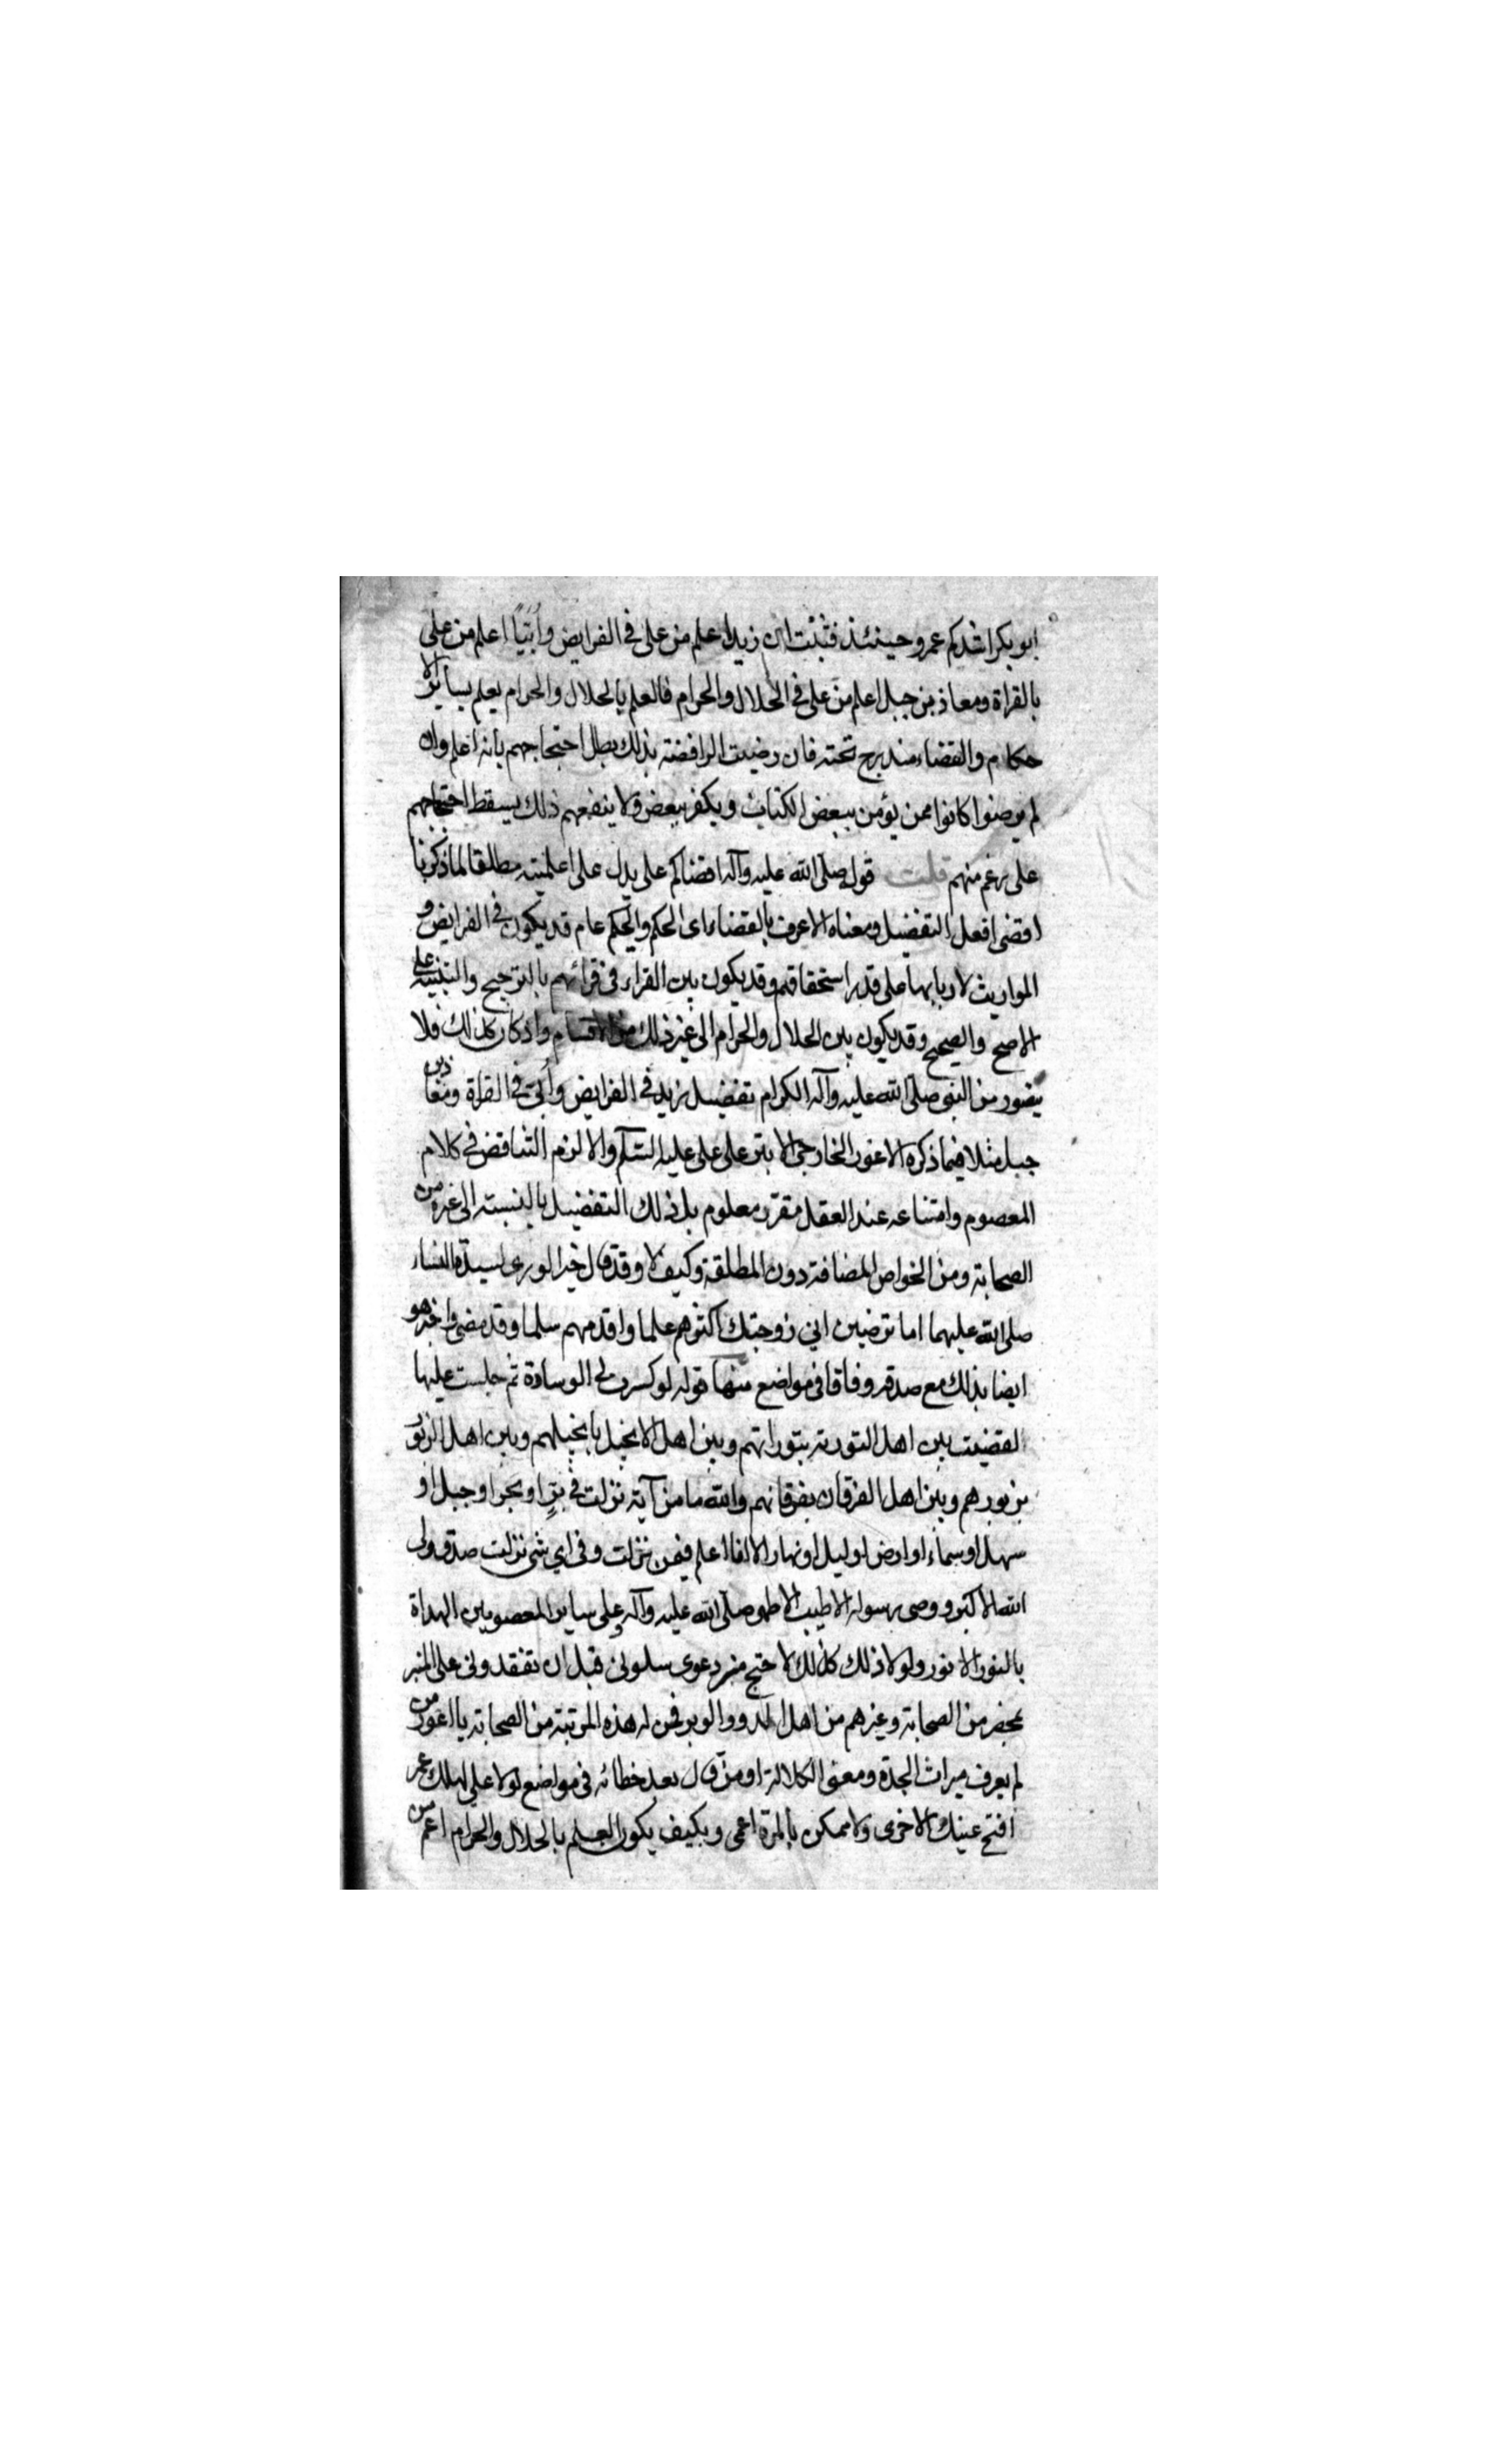 ابو بكر اشدكم عمر وحينئذ فثبت ان زيدا اعلم من على فى الفرايض وأُبَيّاً اعلم من على
بالقراة ومعاذ بن جبل اعلم من على فى الحلال والحرام فالعلم بالحلال والحرام يعلم بساير الا
حكام والقضاء مندرج تحته فان رضيت الرافضة بذلك بطل احتجاجهم بانه اعلم وان
لم يرضوا كانوا ممن يؤمن ببعض الكتاب ويكفر ببعض ولا ينفعهم ذلك يسقط احتجاجهم
على رغم منهم قلت قوله صلى الله عليه وآله اقضاكم على يدل على اعلميته مطلقا لما ذكرنا
اقضى افعل التفضيل ومعناه الاعرف بالقضاء اى الحكم والحكم عام قد يكون فى الفرايض و
المواريث لاربابها على قدر استحقاقهم وقد يكون بين القراء فى قرائهم بالترجيح والتنبيه على
الاصح والصحيح وقد يكون بين الحلال والحرام الى غير ذلك من الاقسام واذ كان كذلك فلا
يتصور من النبى صلى الله عليه وآله الكرام تفضيل زيد فى الفرايض وأُبى فى القراة ومعاذ بن
جبل مثلا فيما ذكره الاعور الخارجى الابتر على على عليه السلم والا لزم التناقض فى كلام
المعصوم وامتناعه عند العقل مقرر معلوم بل ذلك التفضيل بالنسبة الى غيره من
الصحابة ومن الخواص المضافة دون المطلقة وكيف لا وقد قال خير الورى لسيدة النساء
صلى الله عليهما اما ترضين انى زوجتك اكثرهم علما واقدمهم سلما وقد مضى واخبر هو
ايضا بذلك مع صدقه وفاقا فى مواضع منها قوله لو كسرت لى الوسادة ثم جلست عليها
لقضيت بين اهل التورية بتوراتهم وبين اهل الانجيل بانجيلهم وبين اهل الزبور
بزبورهم وبين اهل الفرقان بفرقانهم والله ما من آية نزلت فى برٍّ او بحر او جبل او
سهل او سماء او ارض او ليل او نهار الا انا اعلم فيمن نزلت وفى اى شى نزلت صدق ولى
الله الاكبر ووصى رسوله الاطيب الاطهر صلى الله عليه وآله وعلى ساير المعصومين الهداة
بالنور الانور ولولا ذلك كذلك لا حتج منه دعوى سلونى قبل ان تفقدونى على المنبر
بمحضر من الصحابة وغيرهم من اهل المدر والوبر فمن له هذه المرتبة من الصحابة يا اعور من
لم يعرف ميراث الجدة ومعنى الكلالة او من قال بعد خطائه فى مواضع لولا على لهلك عمر
افتح عينك الاخرى ولا ممكن بالمرة اعمى وبكيف يكون العلم بالحلال والحرام اعم من